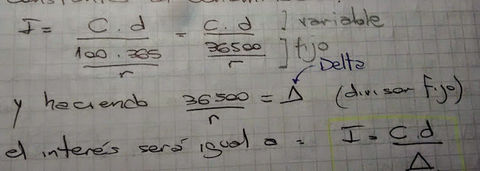 I = C.d / (100.365 / r) = C.d / (36500 / r) ] variable ] fijo
Delta
y haciendo 36500 / r = Δ (divisor fijo)
el interés será igual a = I = C.d / Δ